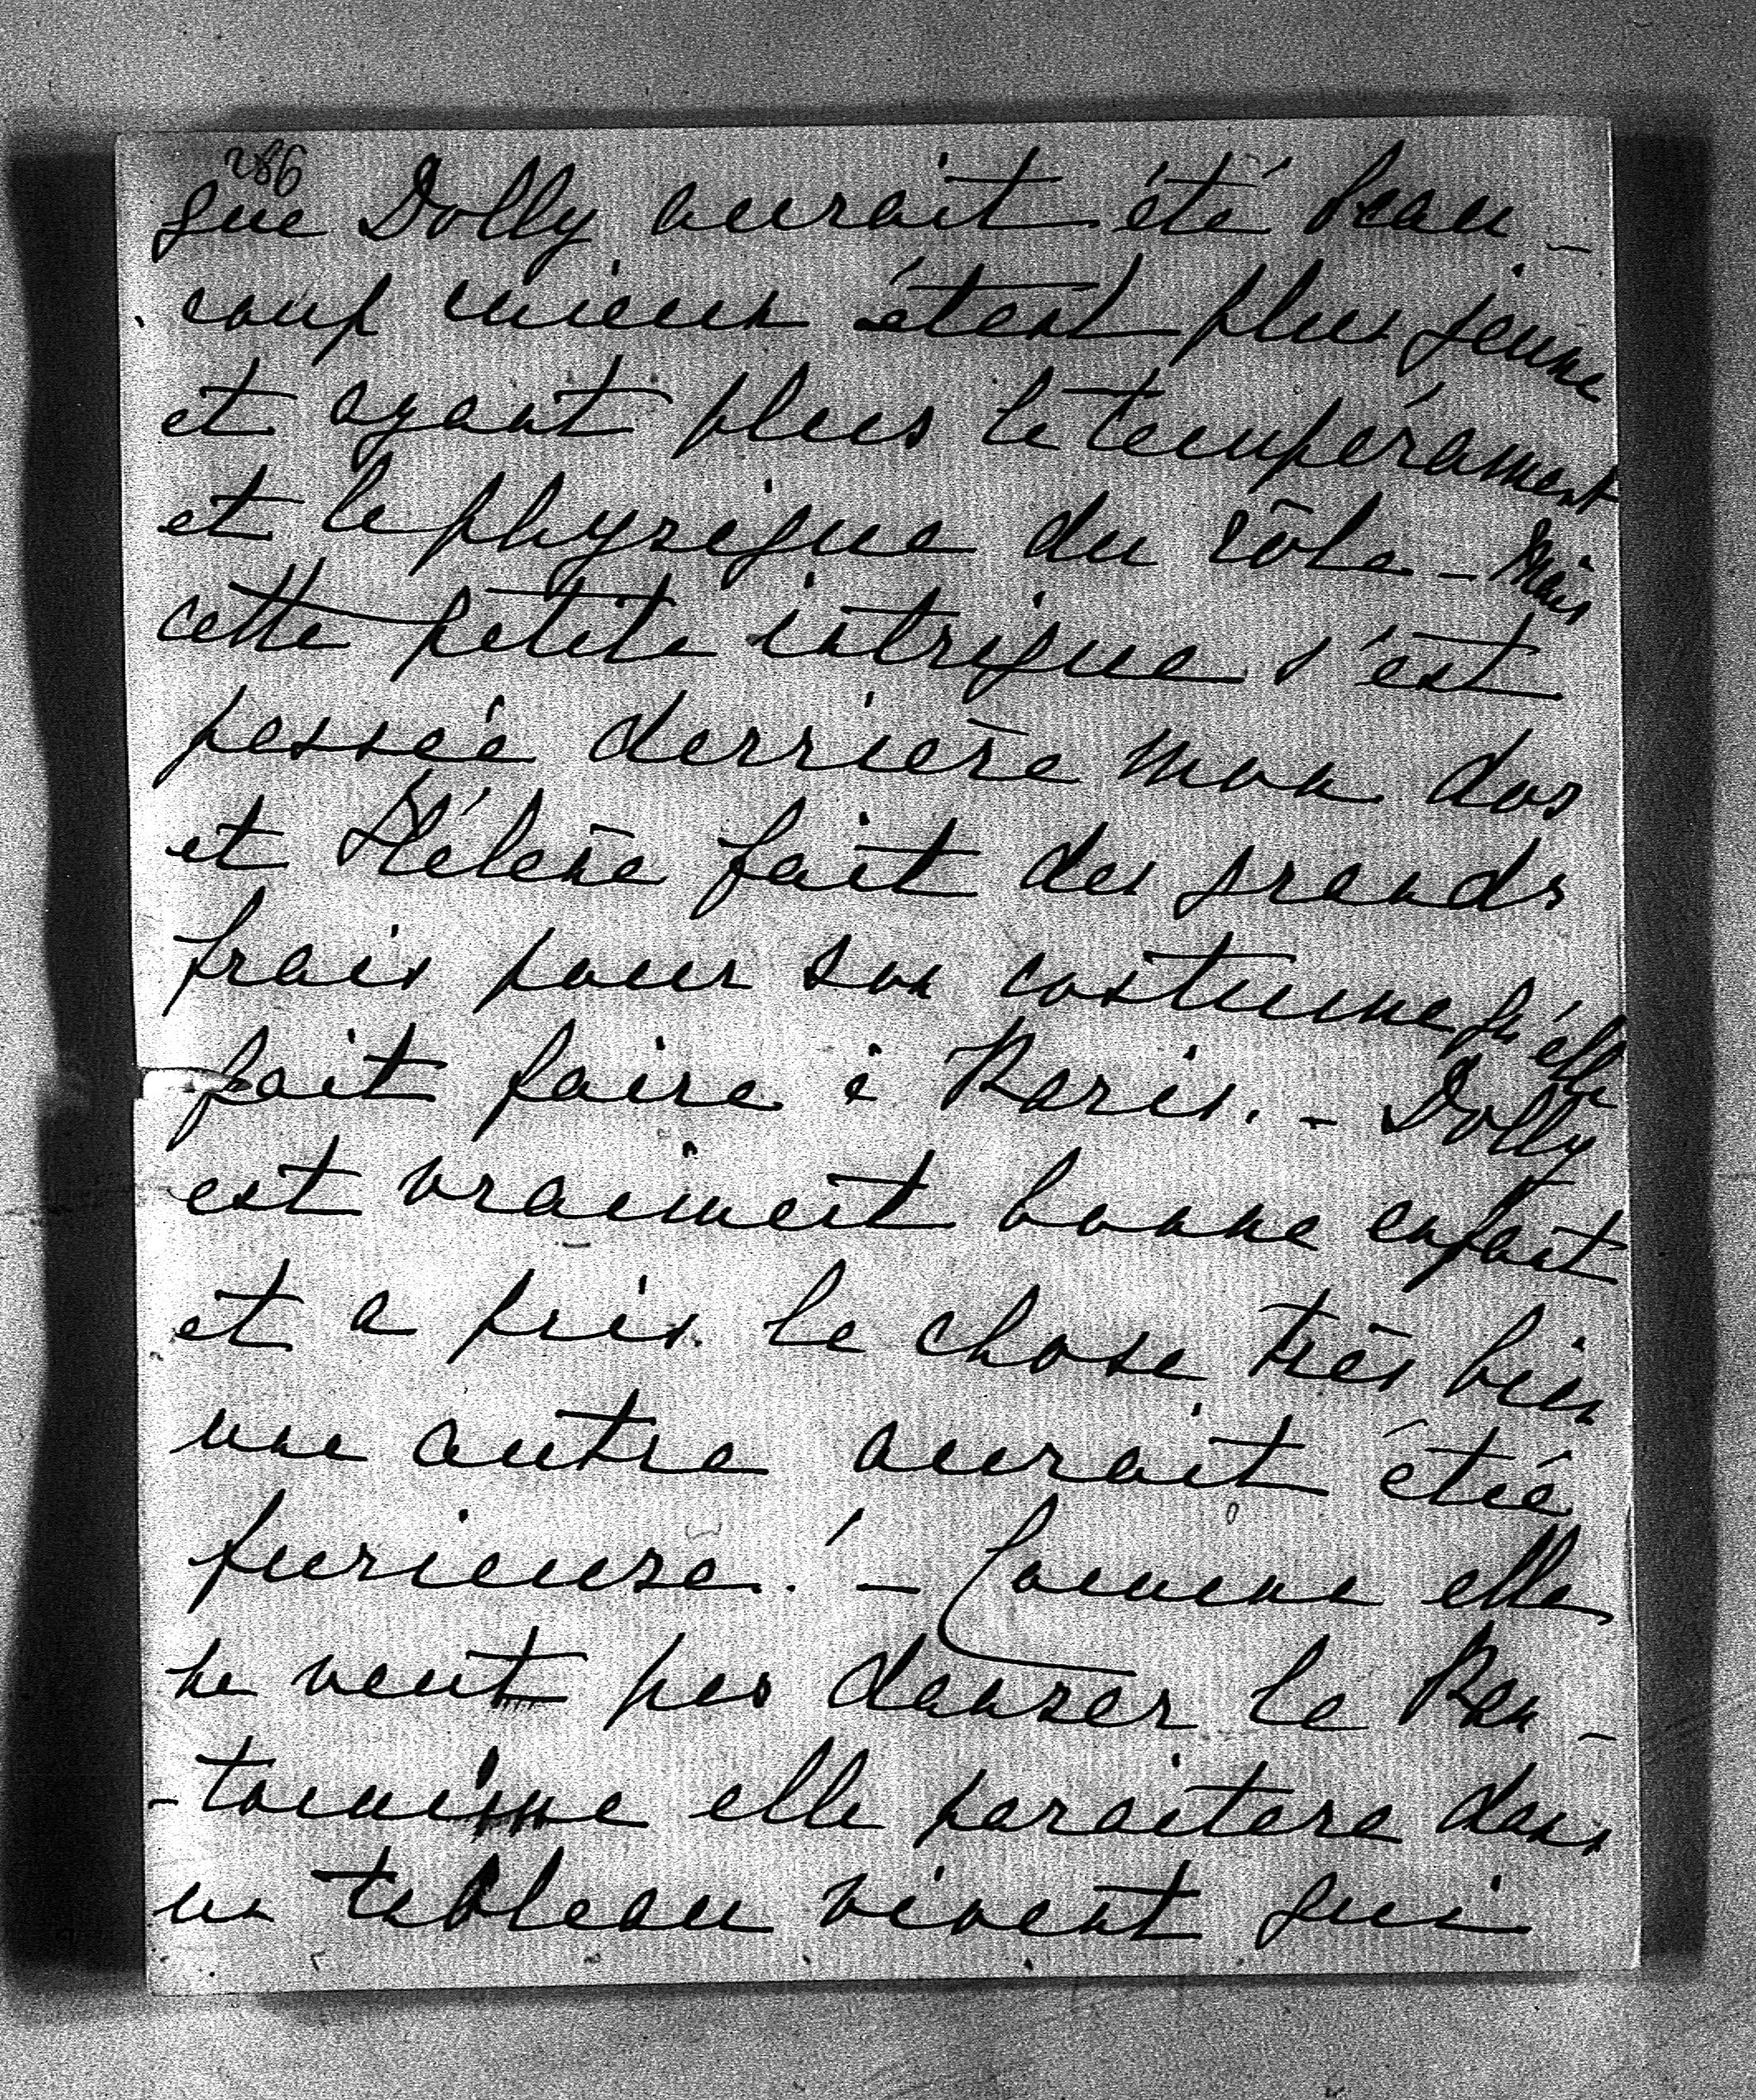 286
que Dolly aurait été beau-
coup mieux étant plus jeune
et ayant plus le tempérament
et le physique du rôle - Mais
cette petite intrigue s'est
passée derrière mon dos
et Hélène fait des grands
frais pour son costume qu'elle
fait faire à Paris. - Dolly
est vraiment bonne enfant
et a pris la chose très bien
une autre aurait été
furieuse! - Comme elle
ne veut pas danser la Pan-
-tomime elle paraitera dans
un tableau vivant qui